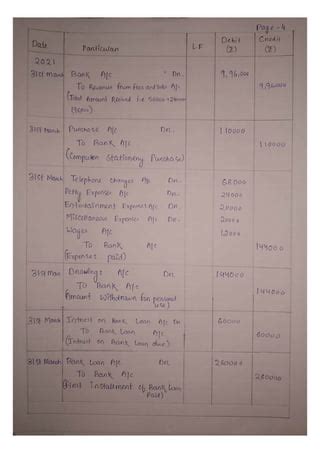 Page-4
Date Particulars L F Debit (₹) Credit (₹)
2021
31st March Bank A/c Dr. 9,96,000
To Revenue from Fees and A/c 9,96,000
(Total Amount Received
31st March Purchase A/c Dr. 110000
To Bank A/c 110000
(Computer Stationery Purchase)
31st March Telephone charges A/c Dr.
Petty Expenses A/c Dr. 24000
Entertainment Expenses A/c Dr.
Miscellaneous Expenses A/c Dr.
Wages A/c 12000
To Bank A/c 144000
(Expenses paid)
31st Mar Drawings A/c Dr. 144000
To Bank A/c 144000
(Amount Withdrawn for personal use)
31st March Interest on Bank Loan A/c Dr. 60000
To Bank Loan A/c 60000
(Interest on Bank Loan due)
31st March Bank Loan A/c Dr. 260000
To Bank A/c 260000
(First Installment of Bank Loan Paid)